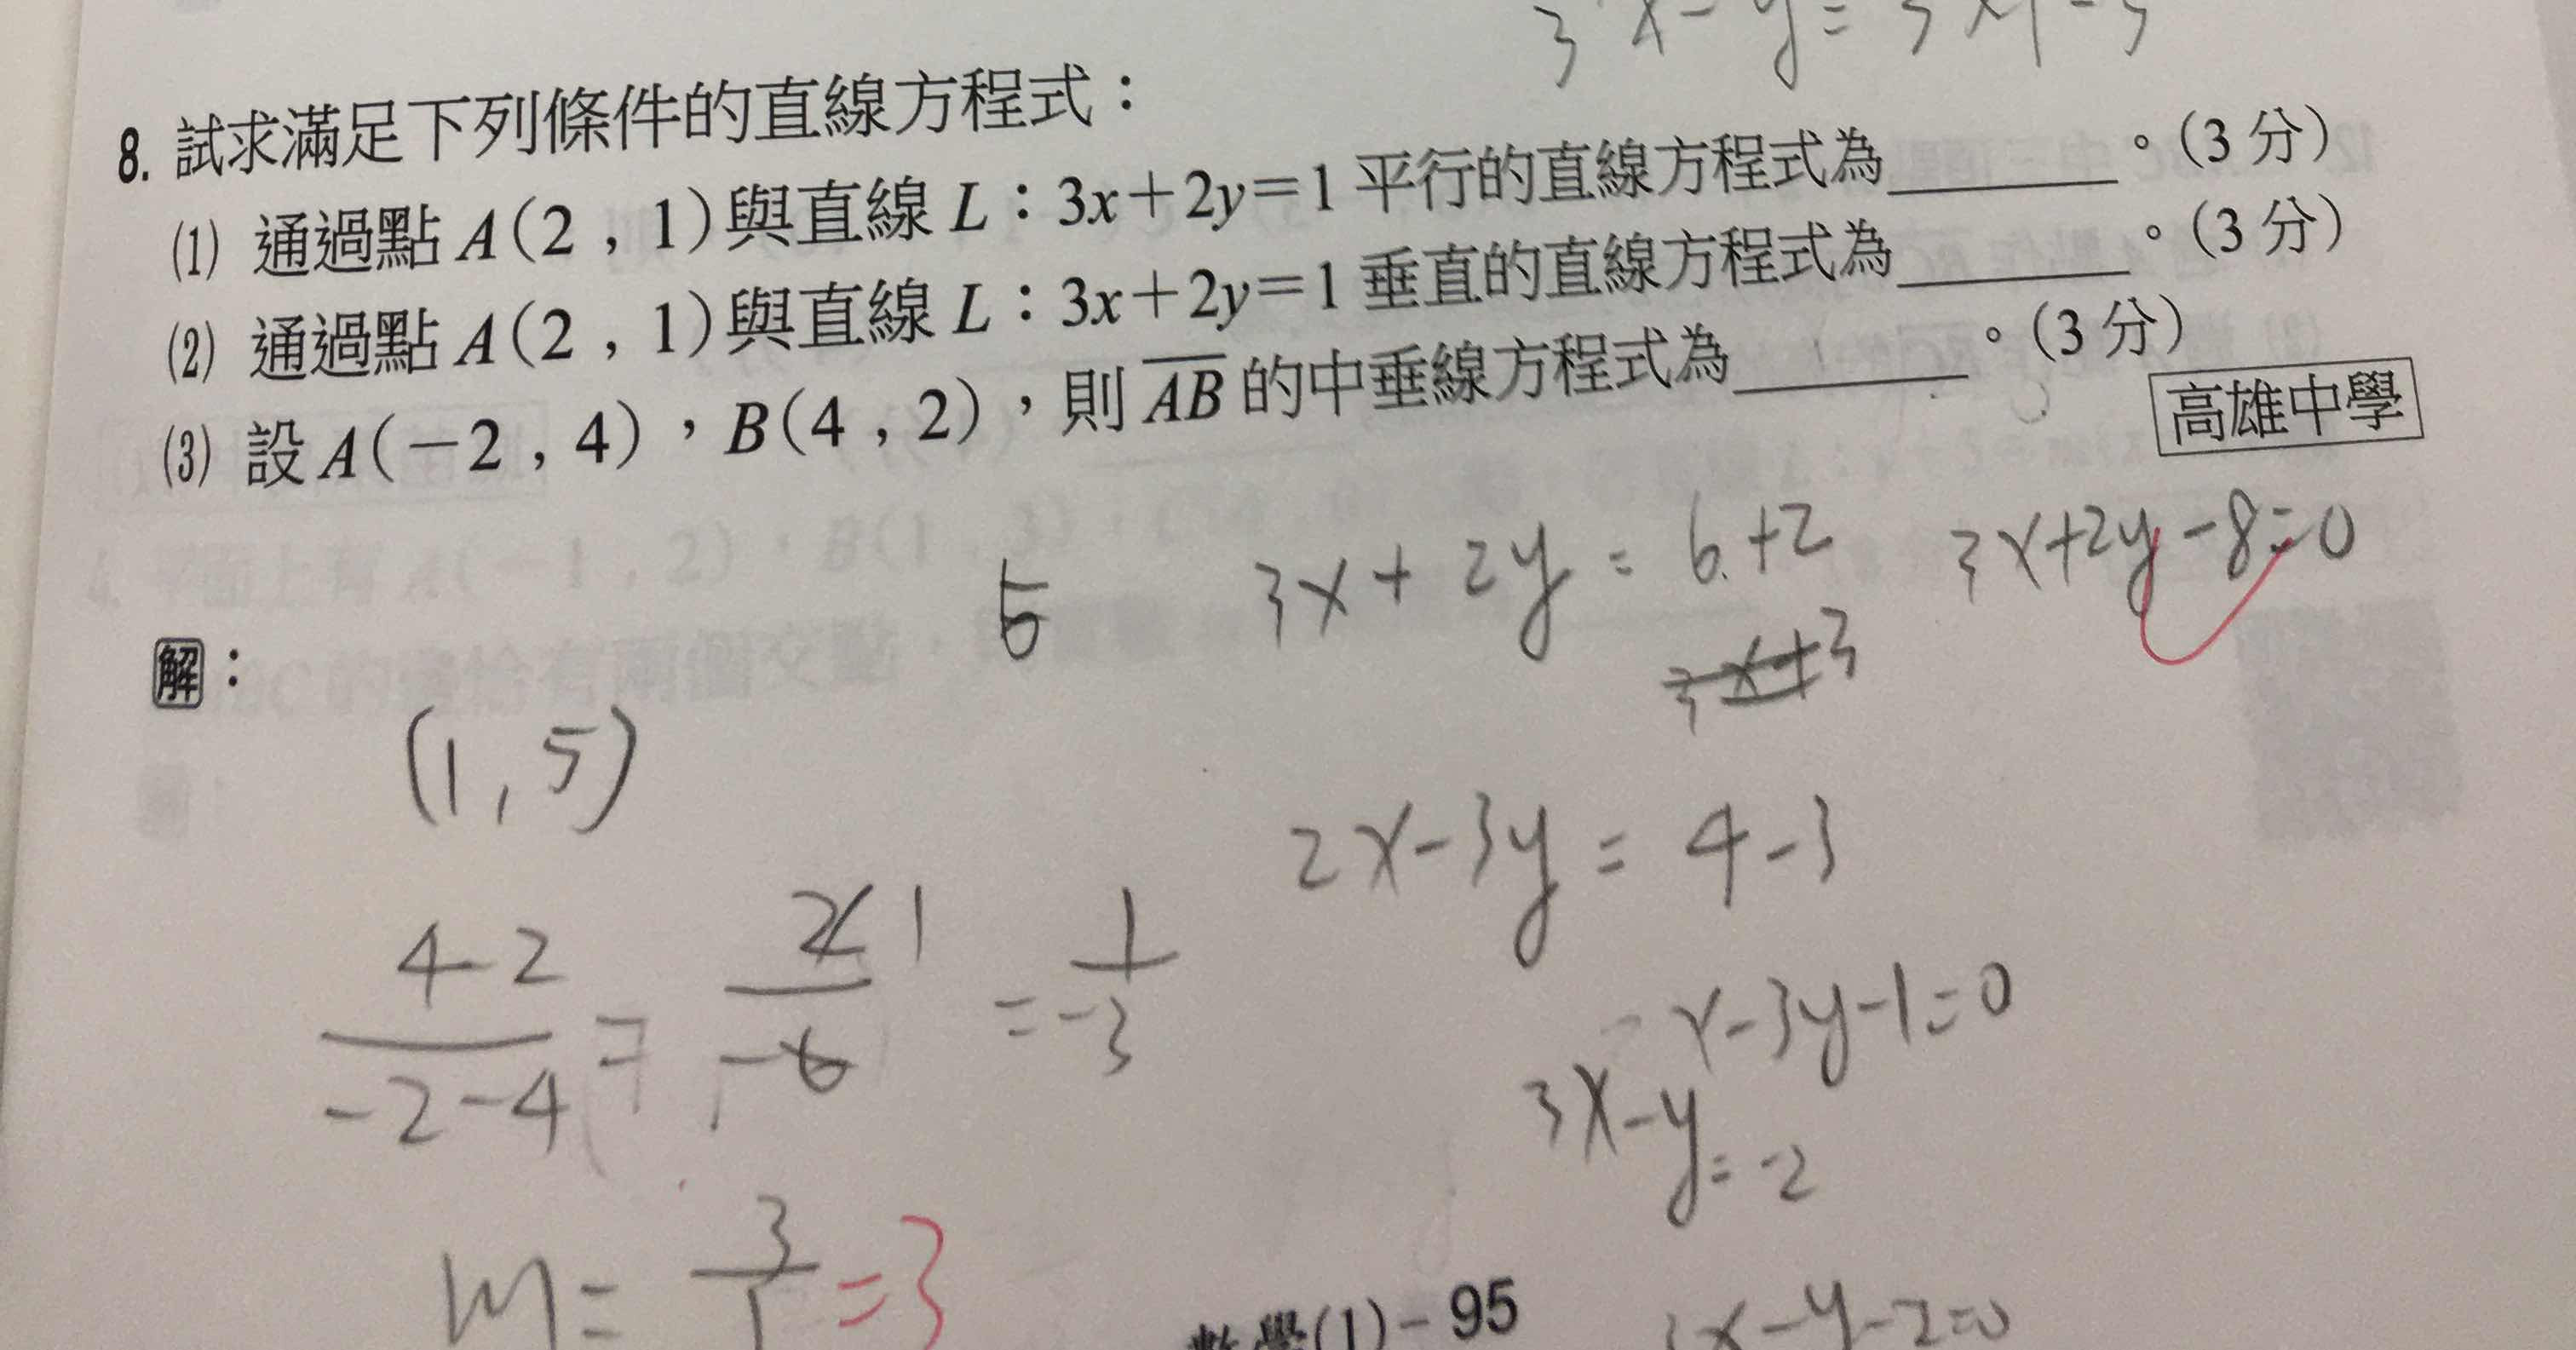 3 x - y =
8. 試求滿足下列條件的直線方程式：
(1) 通過點 A(2 , 1)與直線 L：3x＋2y＝1 平行的直線方程式為________。(3 分)
(2) 通過點 A(2 , 1)與直線 L：3x＋2y＝1 垂直的直線方程式為________。(3 分)
(3) 設 A(－2 , 4)，B(4 , 2)，則 AB 的中垂線方程式為________。(3 分)
高雄中學
3x + 2y = 6+2
3x+2y-8=0
解：
(1 , 5)
2x-3y = 4-3
4-2 / -2-4 = 2 1 / -6 = 1 / -3
x-3y-1=0
3x-y = -2
m = 3/1 = 3
數學(1)－95
x-y-2=0